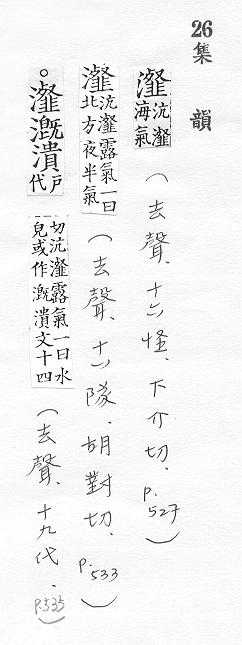 26 集 韻
瀣 沆瀣海氣 (去聲、十六怪、下介切. p.527)
瀣 沆瀣露氣一曰北方夜半氣 (去聲、十八隊、胡對切. p.533)
。瀣漑潰 戶代切沆瀣露氣一曰水皃或作漑潰文十四 (去聲、十九代. p.535)